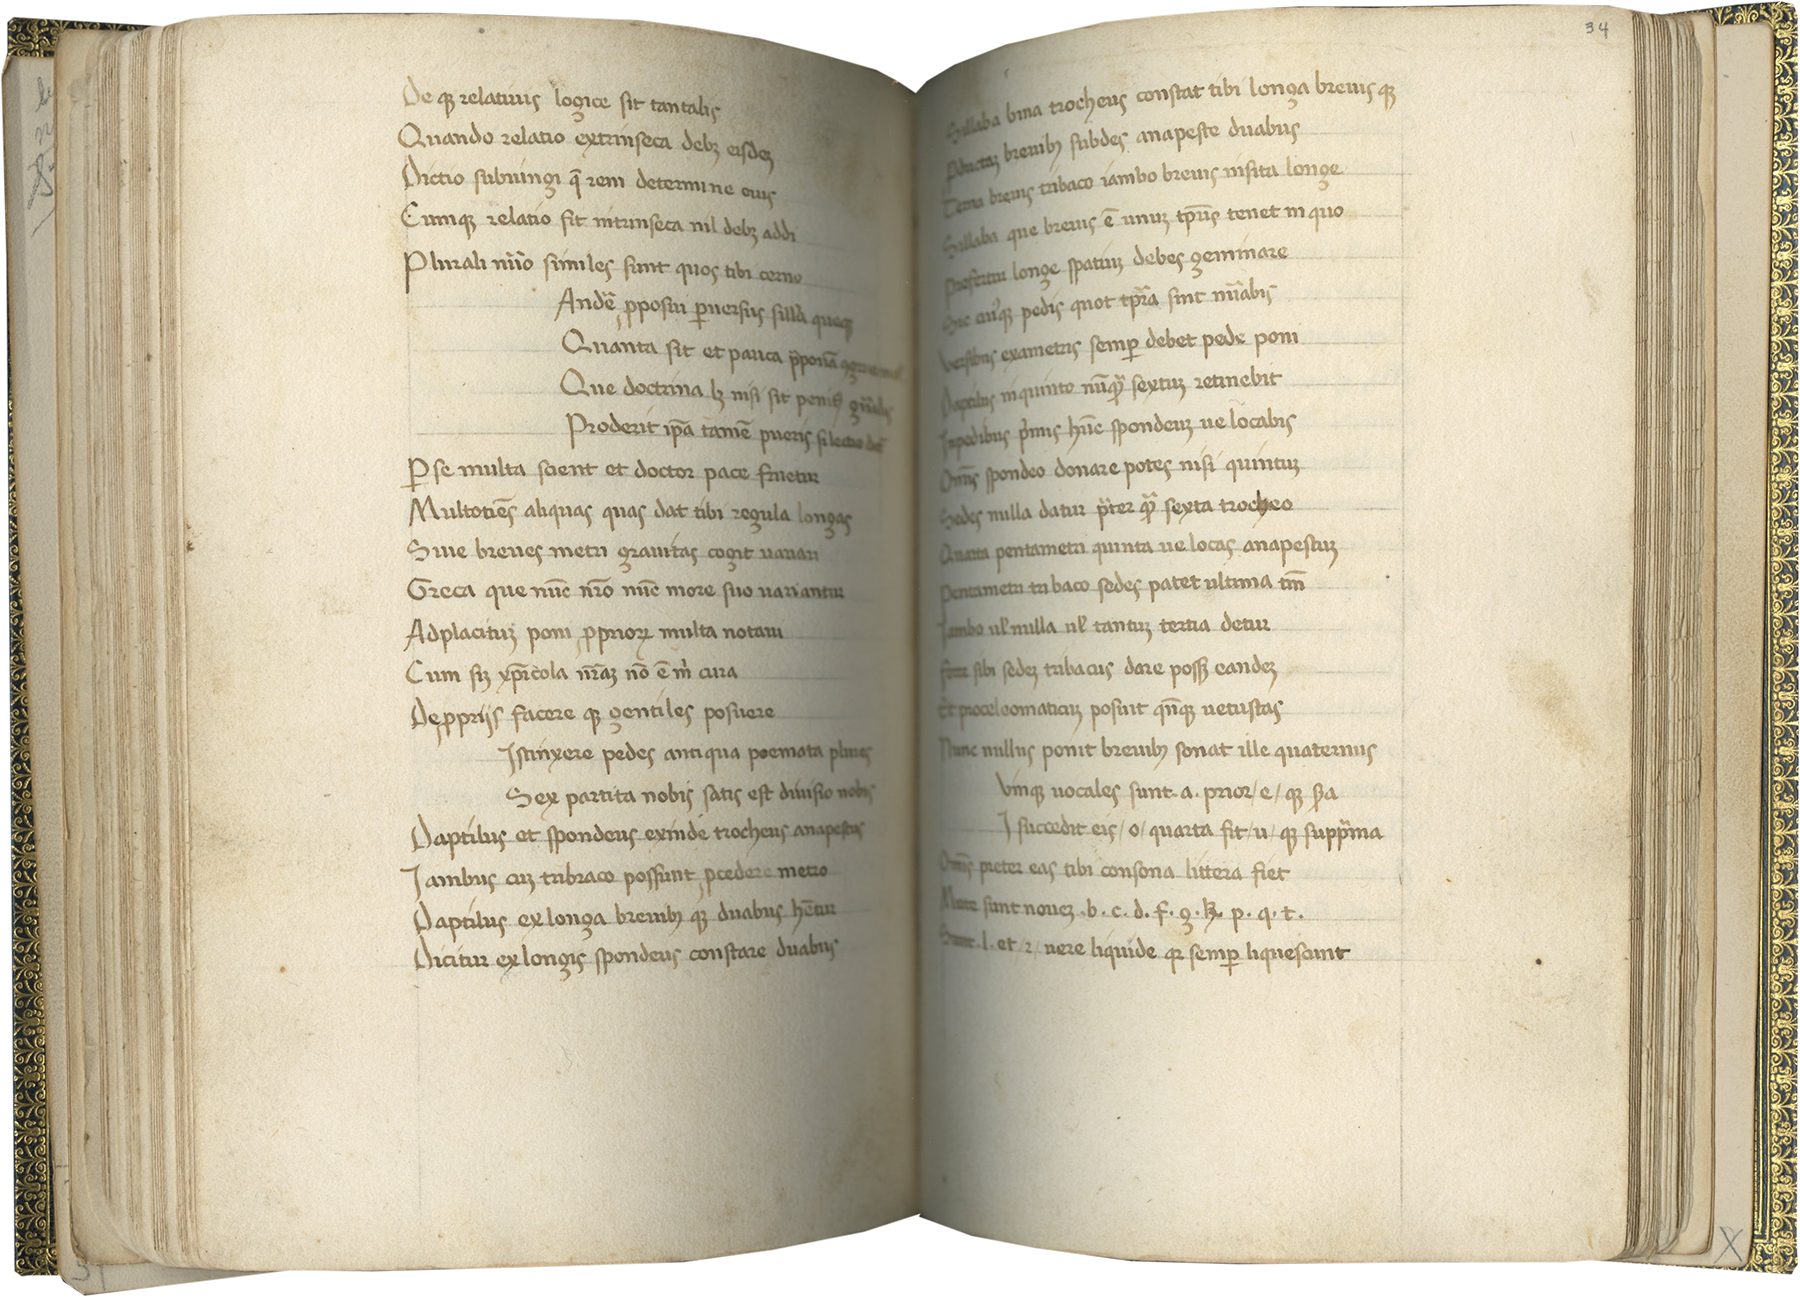 De qꝫ relatiuis logice sit tantalis
Quando relatio extrinseca debꝫ eisdeꝫ
Dictio subiungi q̄ rem determine eius
Cumqꝫ relatio fit intrinseca nil debꝫ addi
Plurali nūo similes sunt quos tibi cerno
ꝓposui ꝑuersus sillā
Quanta sit et pauca
Que doctrina lꝫ nisi sit
Proderit ip̄a tamē pueris si
ꝑ se multa scient et doctor pace fruetur
Multotiēs aliquas quas dat tibi regula longas
Siue breues metri grauitas cogit uariari
Greca que nūc nr̄o nūc more suo uariantur
Ad placituꝫ poni ꝓprioꝝ multa notaui
Cum siꝫ xp̄icola nr̄aꝫ nō ē m̄ cura
De ꝓprijs facere qꝫ gentiles posuere
Istinxere pedes antiqua poemata plures
Sex partita nobis satis est diuisio nobis
Daptilus et spondeus exinde trocheus anapestus
Iambus cuꝫ tribraco possunt p̄cedere metro
Daptilus ex longa breuibꝫ qꝫ duabus hētur
Dicitur ex longis spondeus constare duabus
34
Sillaba bina trocheus constat tibi longa breuis qꝫ
breuibꝫ subdes anapeste duabus
Terna breuis tribaco iambo breuis insita longe
Sillaba que breuis ē unuꝫ tp̄us tenet in quo
Profertur longe spatiuꝫ debes geminare
Sic cui'qꝫ pedis quot tp̄ra sint nūabis
Versibus exametris semꝑ debet pede poni
Daptilus in quinto nūqꝫ sextuꝫ retinebit
Inpedibus p̄mis hūc spondeuꝫ ue locabis
Om̄s spondeo donare potes nisi quintuꝫ
Sedes nulla datur p̄ter qꝫ sexta trocheo
Quarta pentametri quinta ue locas anapestuꝫ
Pentametri tribaco sedes patet ultima tm̄
Iambo ul' nulla ul' tantuꝫ tertia detur
sibi sedeꝫ tribacus dare possꝫ eandeꝫ
Et proceleomaticuꝫ posuit qn̄qꝫ uetustas
Nunc nullus ponit breuibꝫ sonat ille quaternis
Vinqꝫ uocales sunt. a. prior/ e/ qꝫ s̄a
I succedit eis/ o/ quarta fit/ u/ qꝫ supp̄ma
Om̄s preter eas tibi consona littera fiet
Mute sunt noueꝫ . b . c . d . f . g . k . p . q . t .
Sunt . l . et / r / uere liquide qꝫ semꝑ liquescunt